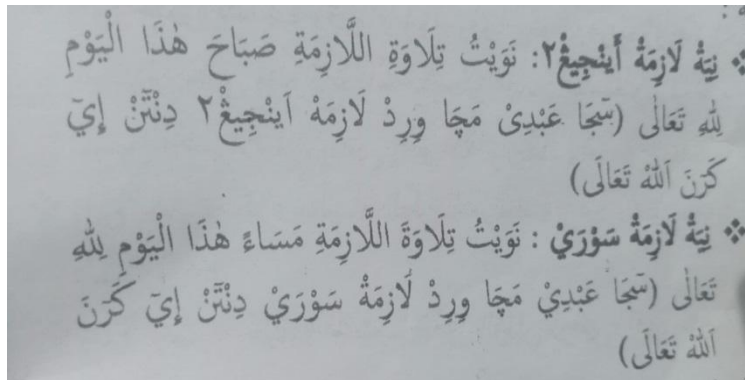 ❖ نِيَةْ لَازِمَةْ أَينْجِيڠْ٢: نَوَيْتُ تِلَاوَةِ اللَّازِمَةِ صَبَاحَ هٰذَا الْيَوْمِ
لِلّٰهِ تَعَالٰى (سٓجَا عَبْدِىْ مَچَا وِرِدْ لَازِمَهْ اَينْجِيڠْ٢ دِنْتٓنْ إِيَ
كَرَنَ اَللّٰهْ تَعَالَى)
❖ نِيَةْ لَازِمَةْ سَوْرَيْ : نَوَيْتُ تِلَاوَةَ اللَّازِمَةِ مَسَاءً هٰذَا الْيَوْمِ لِلّٰهِ
تَعَالٰى (سٓجَا عَبْدِيْ مَچَا وِرِدْ لَازِمَةْ سَوْرَيْ دِنْتٓنْ إِيَ كَرَنَ
اَللّٰهْ تَعَالَى)